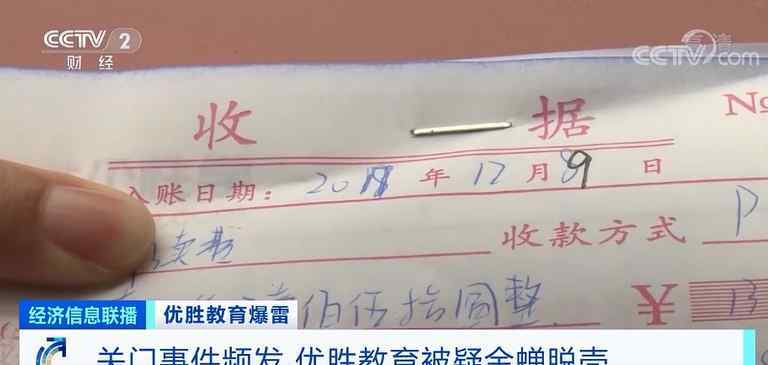 CCTV 2
财经
CCTV.com
收据
No
入账日期： 年 12 月 9 日
收款方式 P
伯伍拾圆整 ¥ 13
经济信息联播 优胜教育爆雷
关门事件频发 优胜教育被疑金蝉脱壳